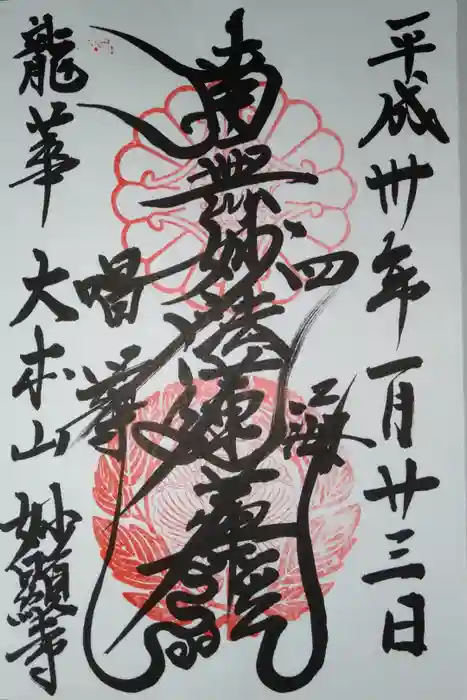 平成卅年一月廿三日
四海
南無妙法蓮華經
唱導
龍華 大本山 妙顯寺